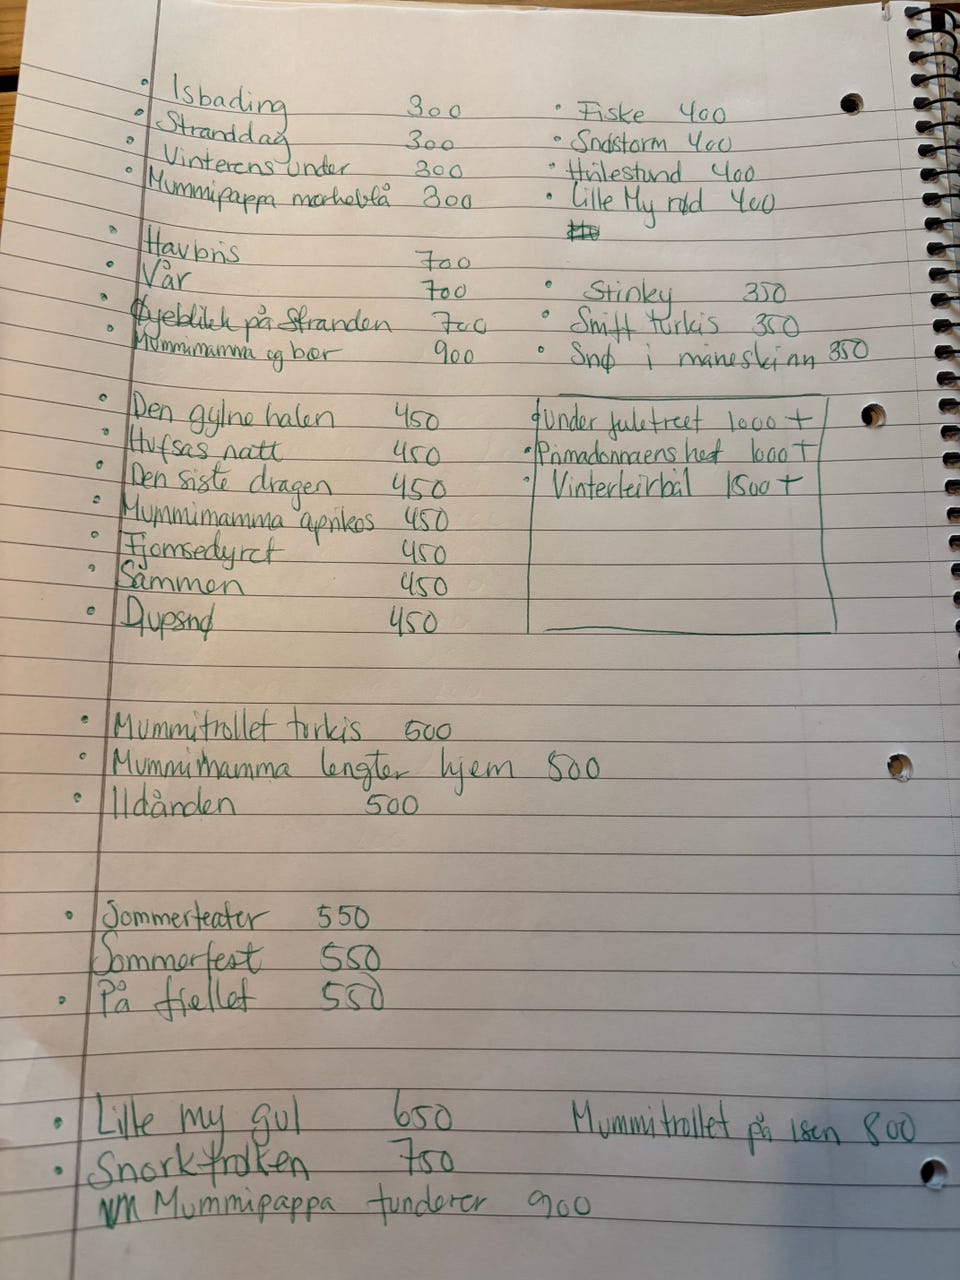 Isbading 300
Stranddag 300
Vinterens under 300
Mummipappa mørkeblå 300
Havbris 700
Vår 700
Øyeblikk på Stranden 700
Mummimamma og bær 900
Den gylne halen 450
Hufsas natt 450
Den siste dragen 450
Mummimamma aprikos 450
Fjomsedyret 450
Såmmen 450
Djupsnø 450
Fiske 400
Sndstorm 400
Hvilestund 400
Lille My rød 400
Stinky 350
Sniff turkis 350
Snø i måneskinn 350
Under juletreet 1000 +
Primadonnaens hest 1000 +
Vinterleirbål 1500 +
Mummitrollet turkis 500
Mummimamma lengter hjem 500
Ildånden 500
Sommerteater 550
Sommerfest 550
På fjellet 550
Lille my gul 650
Snorkfrøken 750
Mummipappa funderer 900
Mummitrollet på isen 800